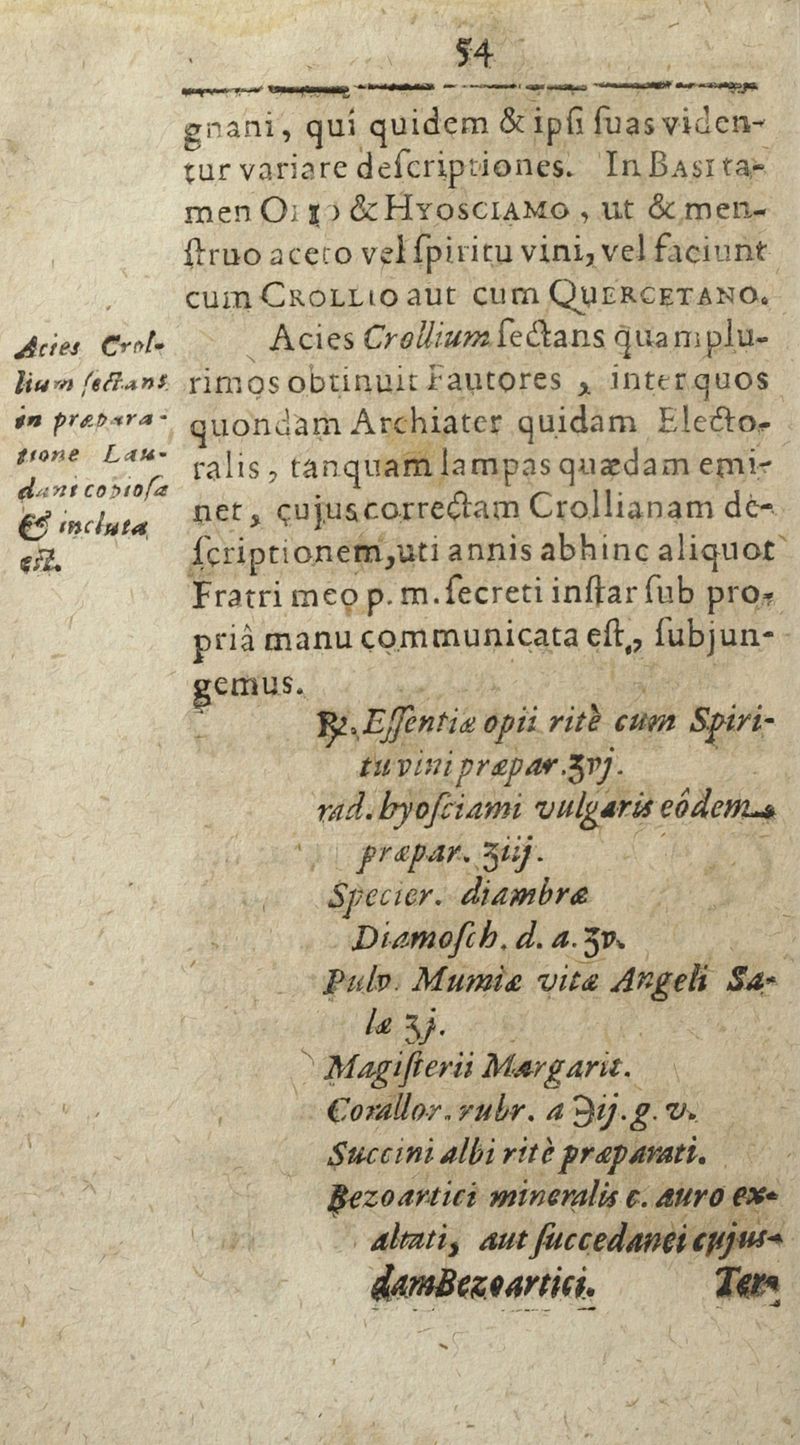 54
gnani, qui quidem & ipſi ſuas viden-
tur variare deſcriptiones. In BASI ta-
men OPIO & HYOSCIAMO, ut & men-
ſtruo aceto vel ſpiritu vini, vel faciunt
cum CROLLIO aut cum QUERCETANO.
Acies Crollium ſectans quamplu-
rimos obtinuit Fautores, inter quos
quondam Archiater quidam Electo-
ralis, tanquam lampas quædam emi-
net, cujus correctam Crollianam de-
ſcriptionem, uti annis abhinc aliquot
Fratri meo p. m. ſecreti inſtar ſub pro-
priâ manu communicata eſt, ſubjun-
gemus.
Acies Crol-
lium ſectans
in præpara-
tione Lau-
dani copioſa
& incluta
eſt.
℞. Eſſentiæ opii ritè cum Spiri-
tu vini præpar. ʒvj.
rad. hyoſciami vulgaris eôdem
præpar. ʒiij.
Specier. diambræ
Diamoſch. d. a. ʒv.
Pulv. Mumiæ vitæ Angeli Sa-
læ ʒj.
Magiſterii Margarit.
Corallor. rubr. a ℈ij. g. v.
Succini albi ritè præparati.
Bezoartici mineralis c. auro ex-
altati, aut ſuccedanei cujus-
dam Bezoartici. Ter-